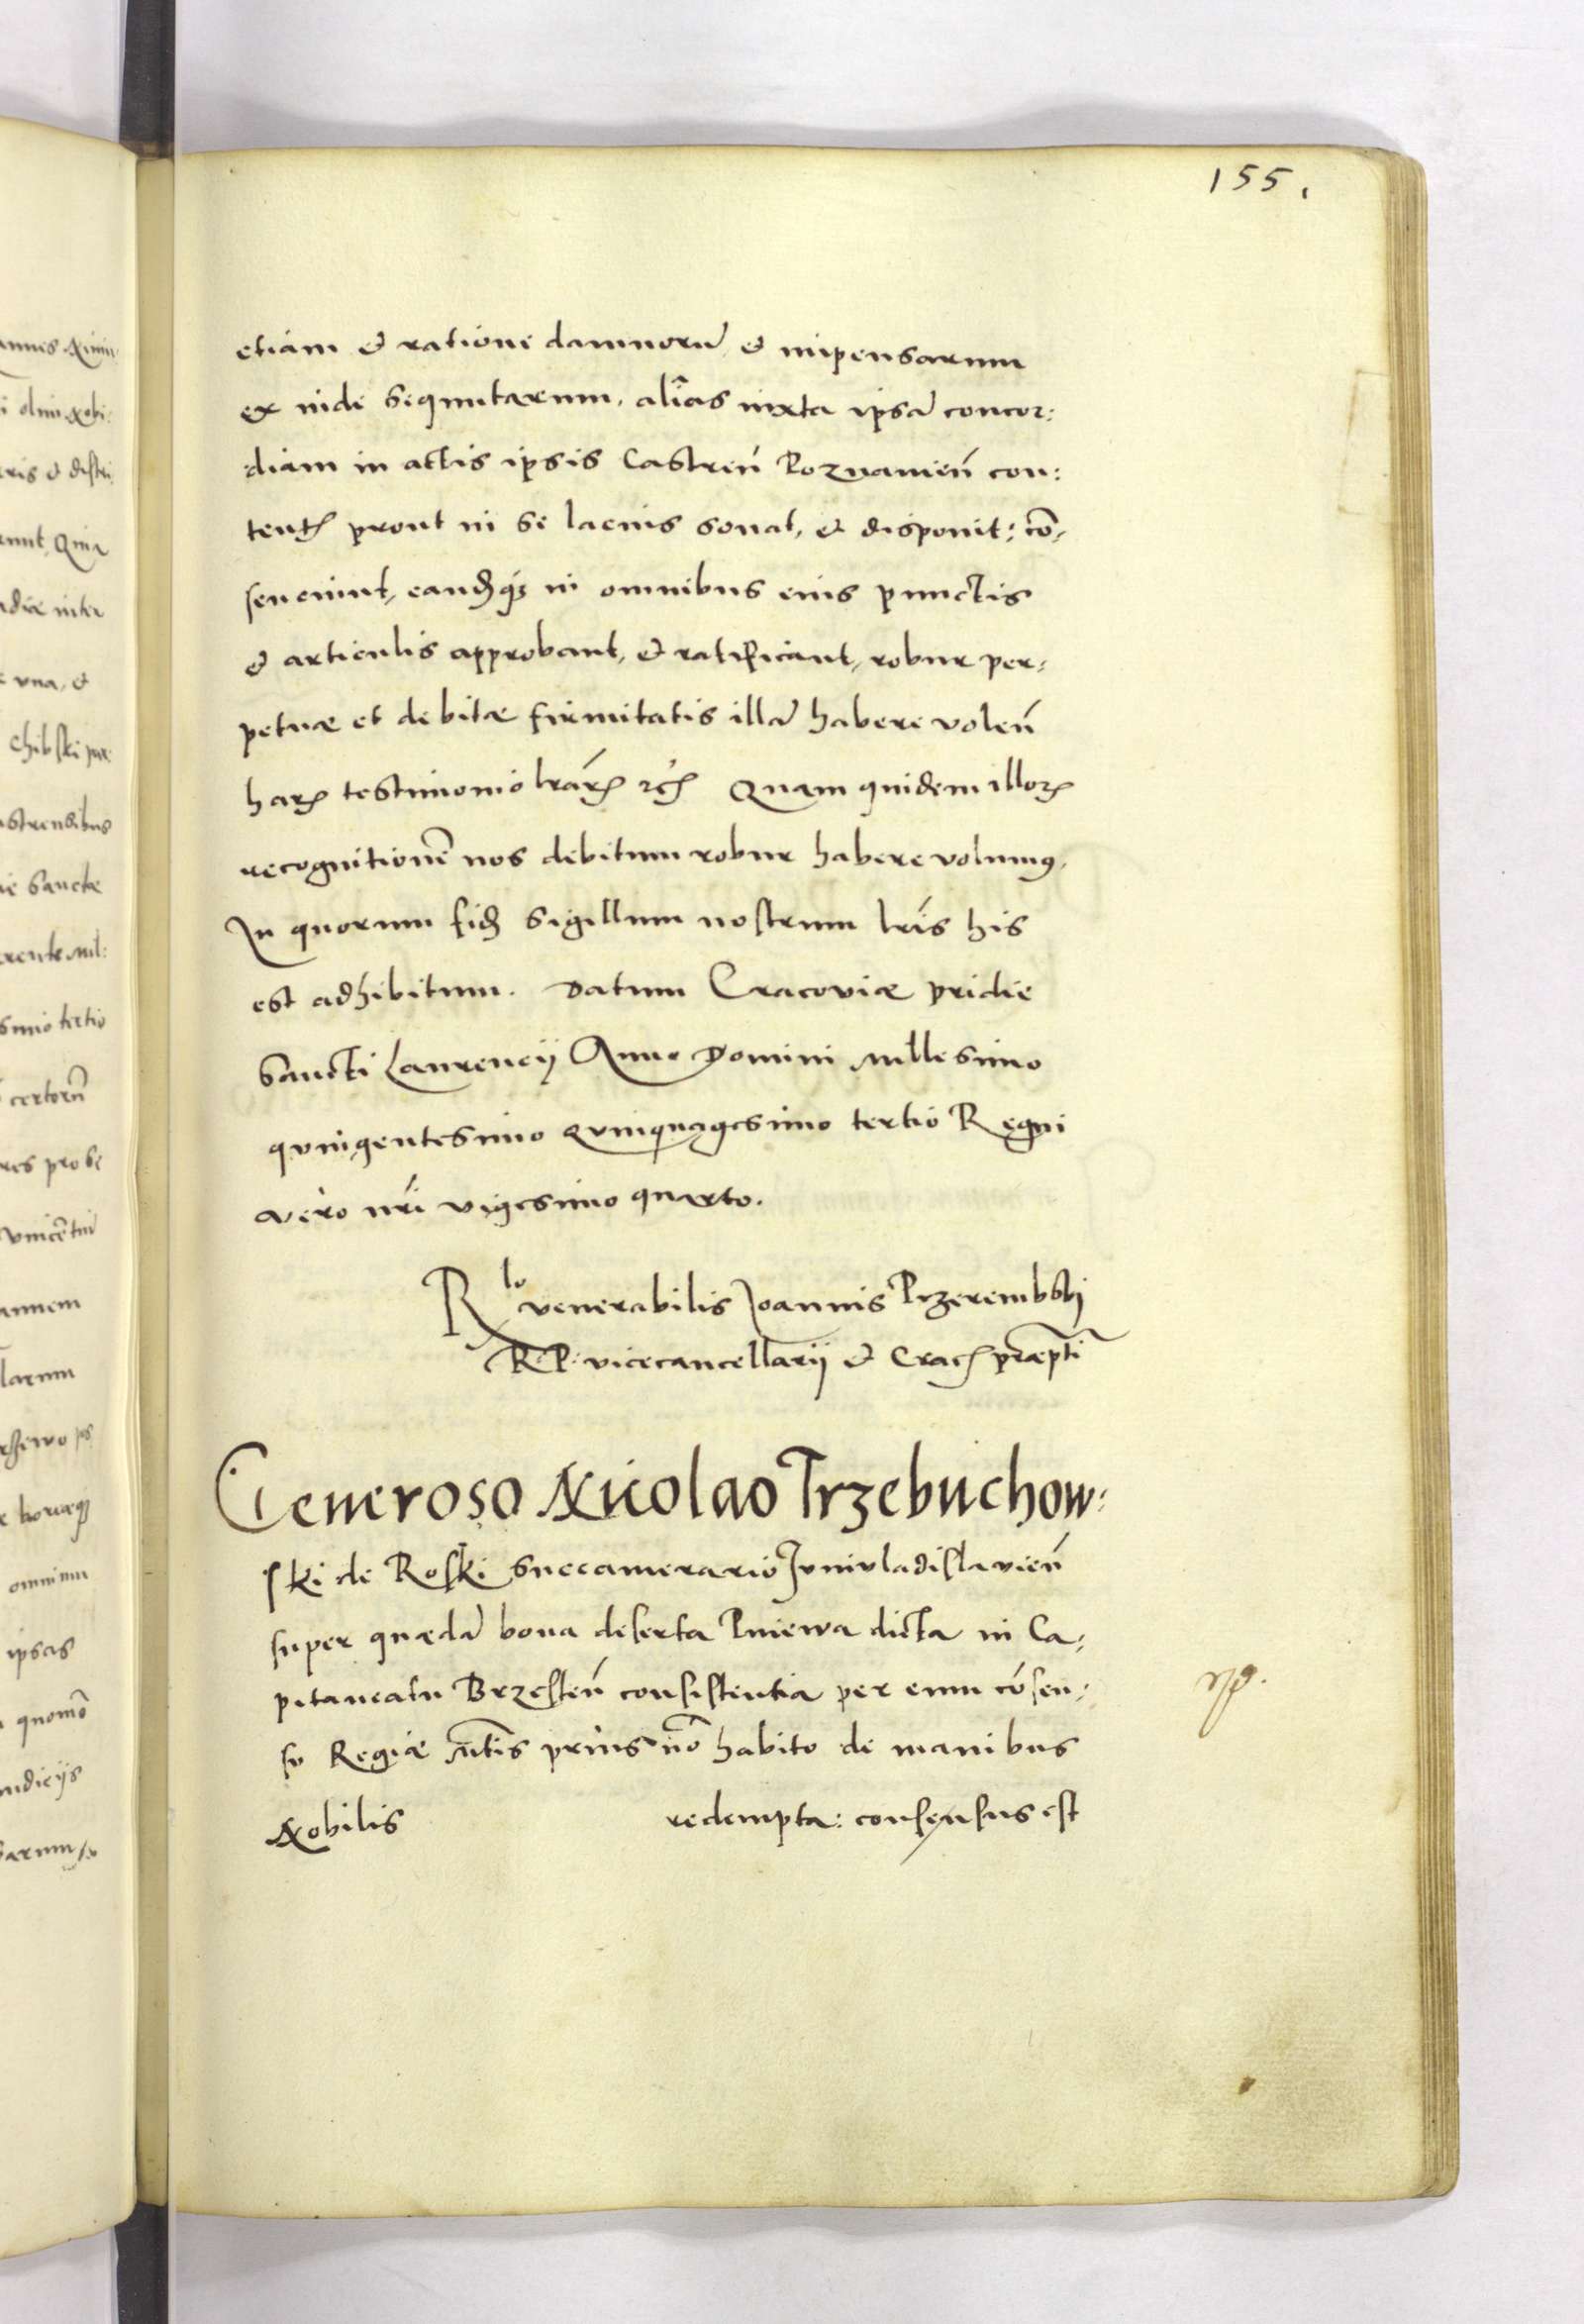 155.
etiam et ratione damnorũ et impensarum
ex inde sequutarum, alĩas iuxta ipsã concor:
diam in actis ipsis Castreñ Poznanieñ con:
tentã prout in se lacius sonat, et disponit: cõ:
senciunt, eandemq3 in omnibus eius punctis
et articulis approbant, et ratificant, robur per:
petuæ et debitæ firmitatis illã habere voleñ
harum testimonio lrárum etc̃ Quam quidem illorum
recognitionẽ nos debitum robur habere volumus.
In quorum fidem sigillum nostrum lrís his
est adhibitum. Datum Cracoviæ pridie
Sancti Laurencij Anno Domini Millesimo
quingentesimo Quinquagesimo tertio Regni
vero nrí vigesimo quarto.
Rlo venerabilis Joannis Przerembski
R: P: vicecancellarij et Crac̃ præpti
Generoso Nicolao Trzebuchow:
ski de Roski succamerario Juniuladislavieñ
super quædã bona deserta Pniewa dicta in Ca:
pitaneatu Brzesteñ consistentia per eum cõsen:
su Regiæ Mtis prius nõ habito de manibus
Nobilis redempta: consensus est